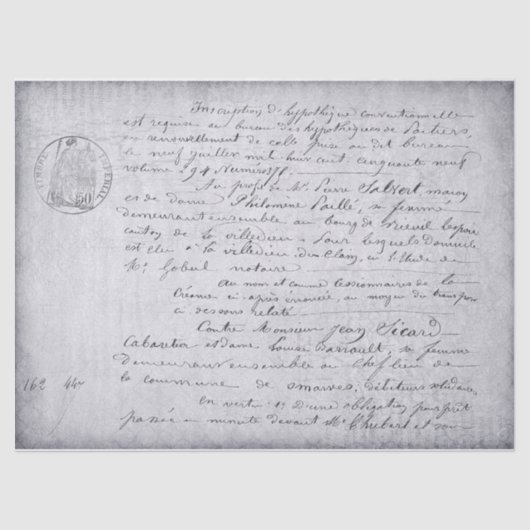 Inscription d'hypothèque conventionnelle
est requise au bureau des hypothèques de Poitiers,
en renouvellement de celle prise au dit bureau
le neuf juillet mil huit cent cinquante neuf
volume 294 Numéro
Au profit de Mr. Pierre Salvert maçon
et de dame Philomène Paillé, sa femme
demeurant ensemble au bourg de
canton de la villedieu. Pour lesquels Domicile
est élu à la villedieu du Clain, en l'étude de
Mr Gobul notaire
Au nom et comme cessionnaires de la
Créance ci-après énoncée, au moyen du transport
ci dessous relaté
Contre Monsieur Jean Sicard
Cabaretier et dame Louise Barrault, sa femme
demeurant ensemble au chef lieu de
la commune de smarves, débiteurs solidaires
En vertu 1º D'une obligation pour prêt
passée en minute devant Me et son
TIMBRE IMPÉRIAL
50
162 44